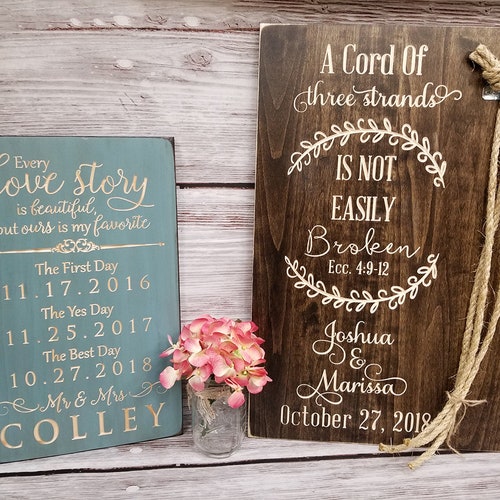 Every
love story
is beautiful,
but ours is my favorite
The First Day
11.17.2016
The Yes Day
11.25.2017
The Best Day
10.27.2018
Mr & Mrs
COLLEY
A Cord Of
three strands
IS NOT
EASILY
Broken
Ecc. 4:9-12
Joshua
&
Marissa
October 27, 2018